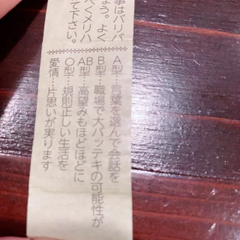 事はバリバ
ょう。よく
べくメリハ
て下さい。
A型…言葉を選んで会話を
B型…職場で大バッテキの可能性が
AB型…高望みもほどほどに
O型…規則正しい生活を
愛情…片思いが実ります